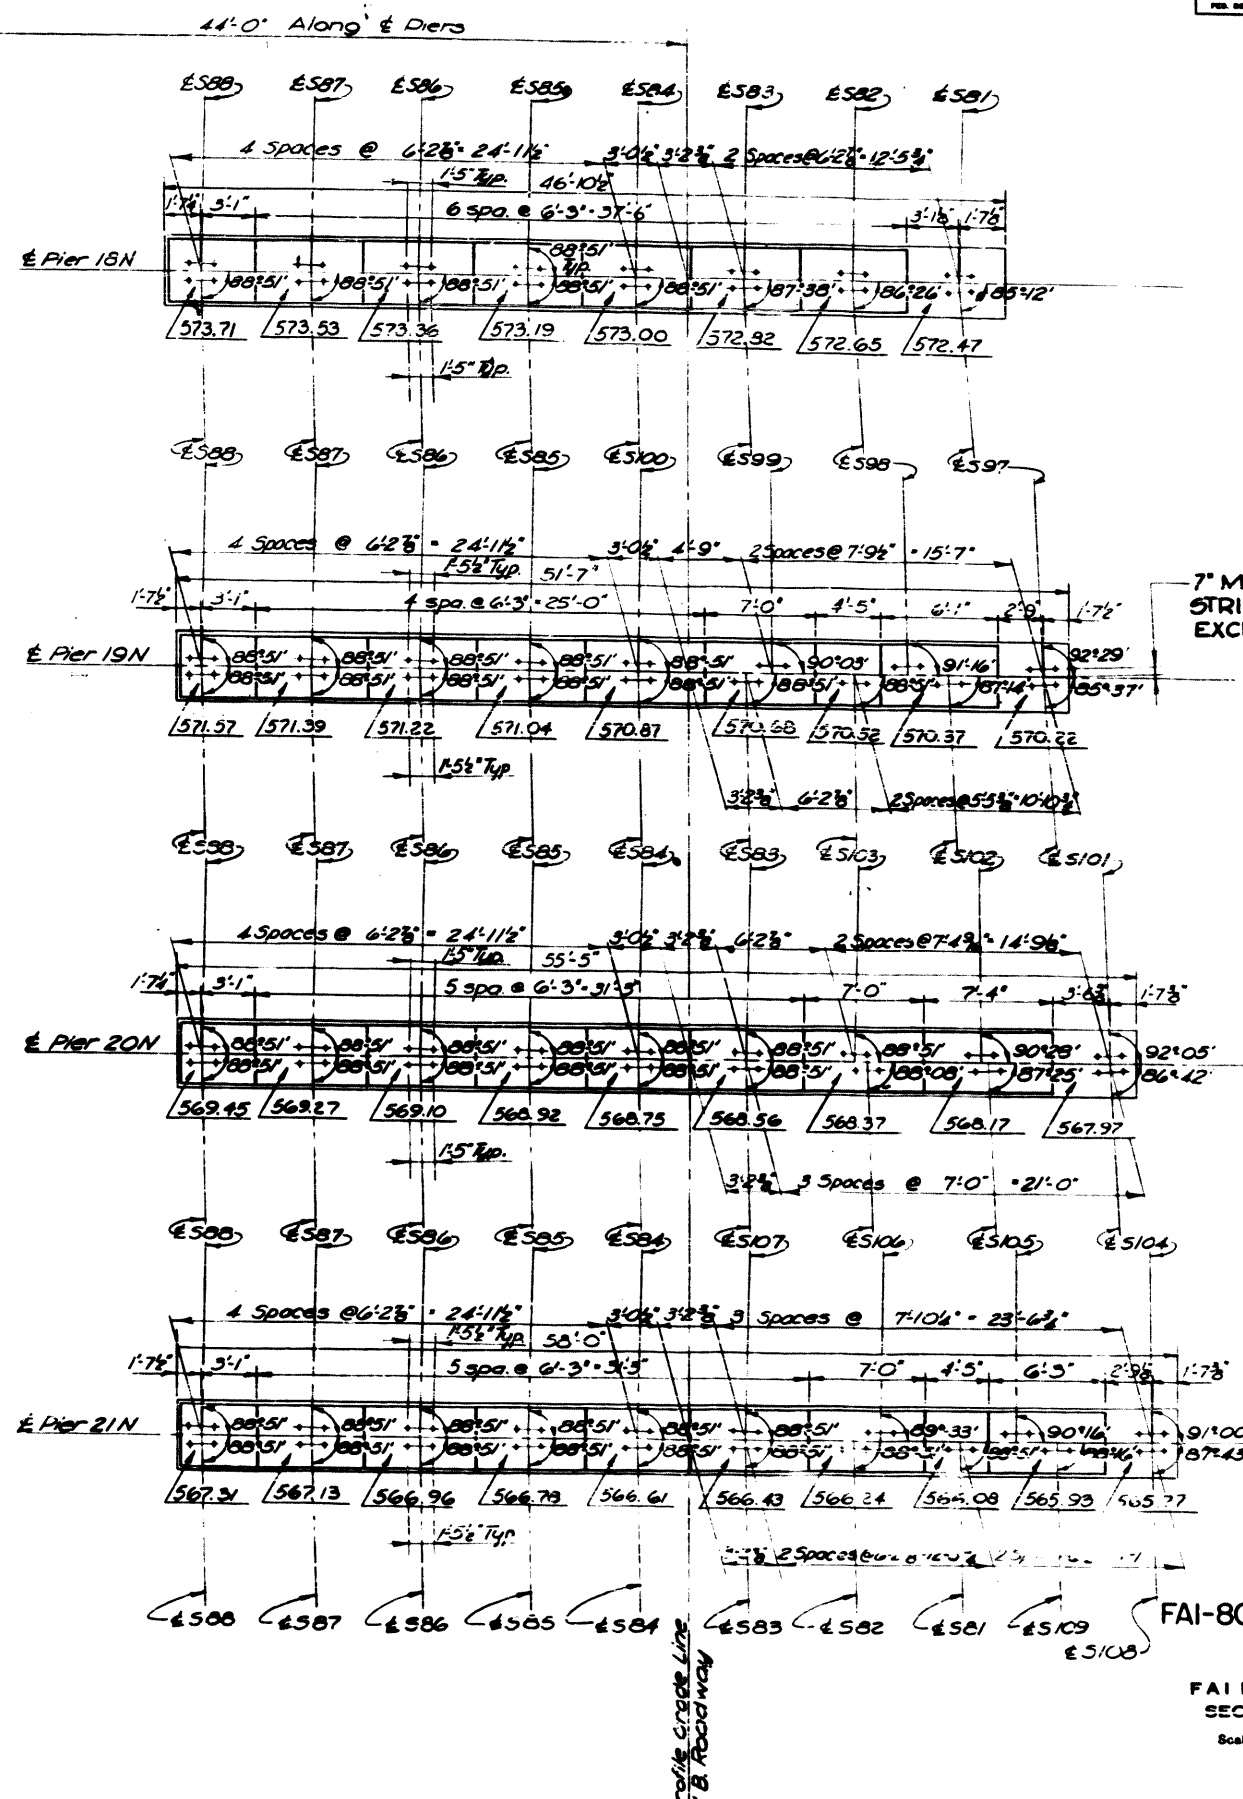 44'-0" Along ℄ Piers
℄S88 ℄S87 ℄S86 ℄S85 ℄S84 ℄S83 ℄S82 ℄S81
4 Spaces @ 6'-2⅞" = 24'-11½" 3'-0½" 3'-2⅜" 2 Spaces @ 6'-2⅞" = 12'-5¾"
1'-5" Typ. 46'-10½"
1'-7¼" 3'-1" 6 spa. @ 6'-3" = 37'-6" 3'-1⅛" 1'-7⅞"
88°51' Typ.
℄ Pier 18N
88°51' 88°51' 88°51' 88°51' 88°51' 87°38' 86°26' 85°12'
573.71 573.53 573.36 573.19 573.00 572.82 572.65 572.47
1'-5" Typ.
℄S88 ℄S87 ℄S86 ℄S85 ℄S100 ℄S99 ℄S98 ℄S97
4 Spaces @ 6'-2⅞" = 24'-11½" 3'-0½" 4'-9" 2 Spaces @ 7'-9½" = 15'-7"
1'-5½" Typ. 51'-7"
1'-7½" 3'-1" 4 spa. @ 6'-3" = 25'-0" 7'-0" 4'-5" 6'-1" 2'-9" 1'-7½"
7" M
STRI
EXC
℄ Pier 19N
88°51' 88°51' 88°51' 88°51' 88°51' 90°03' 91°16' 92°29'
88°51' 88°51' 88°51' 88°51' 88°51' 88°51' 88°51' 87°14' 85°37'
571.57 571.39 571.22 571.04 570.87 570.68 570.52 570.37 570.22
1'-5½" Typ
3'-2⅜" 6'-2⅞" 2 Spaces @ 5'-5⅜" = 10'-10¾"
℄S88 ℄S87 ℄S86 ℄S85 ℄S84 ℄S83 ℄S103 ℄S102 ℄S101
4 Spaces @ 6'-2⅞" = 24'-11½" 3'-0½" 3'-2⅜" 6'-2⅞" 2 Spaces @ = 14'-9⅛"
1'-5" Typ. 55'-5"
1'-7¼" 3'-1" 5 spa. @ 6'-3" = 31'-3" 7'-0" 7'-4" 3'-6¾" 1'-7⅜"
℄ Pier 20N
88°51' 88°51' 88°51' 88°51' 88°51' 88°51' 88°51' 90°28' 92°05'
88°51' 88°51' 88°51' 88°51' 88°51' 88°51' 88°08' 87°25' 86°42'
569.45 569.27 569.10 568.92 568.75 568.56 568.37 568.17 567.97
1'-5" Typ.
3'-2⅜" 3 Spaces @ 7'-0" = 21'-0"
℄S88 ℄S87 ℄S86 ℄S85 ℄S84 ℄S107 ℄S106 ℄S105 ℄S104
4 Spaces @ 6'-2⅞" = 24'-11½" 3'-0½" 3'-2⅜" 3 Spaces @ 7'-10¼" = 23'-6¾"
1'-5½" Typ. 58'-0"
1'-7½" 3'-1" 5 spa. @ 6'-3" = 31'-3" 7'-0" 4'-5" 6'-3" 2'-9⅛" 1'-7⅜"
℄ Pier 21N
88°51' 88°51' 88°51' 88°51' 88°51' 88°51' 89°33' 90°16' 91°00
88°51' 88°51' 88°51' 88°51' 88°51' 88°51' 87°43'
567.31 567.13 566.96 566.78 566.61 566.43 566.24 566.08 565.93
1'-5½" Typ
2 Spaces @
℄S88 ℄S87 ℄S86 ℄S85 ℄S84 ℄S83 ℄S82 ℄S81 ℄S109
℄S108
FAI-80
FAI
SEC
Scal
rofile Grade Line
B. Roadway